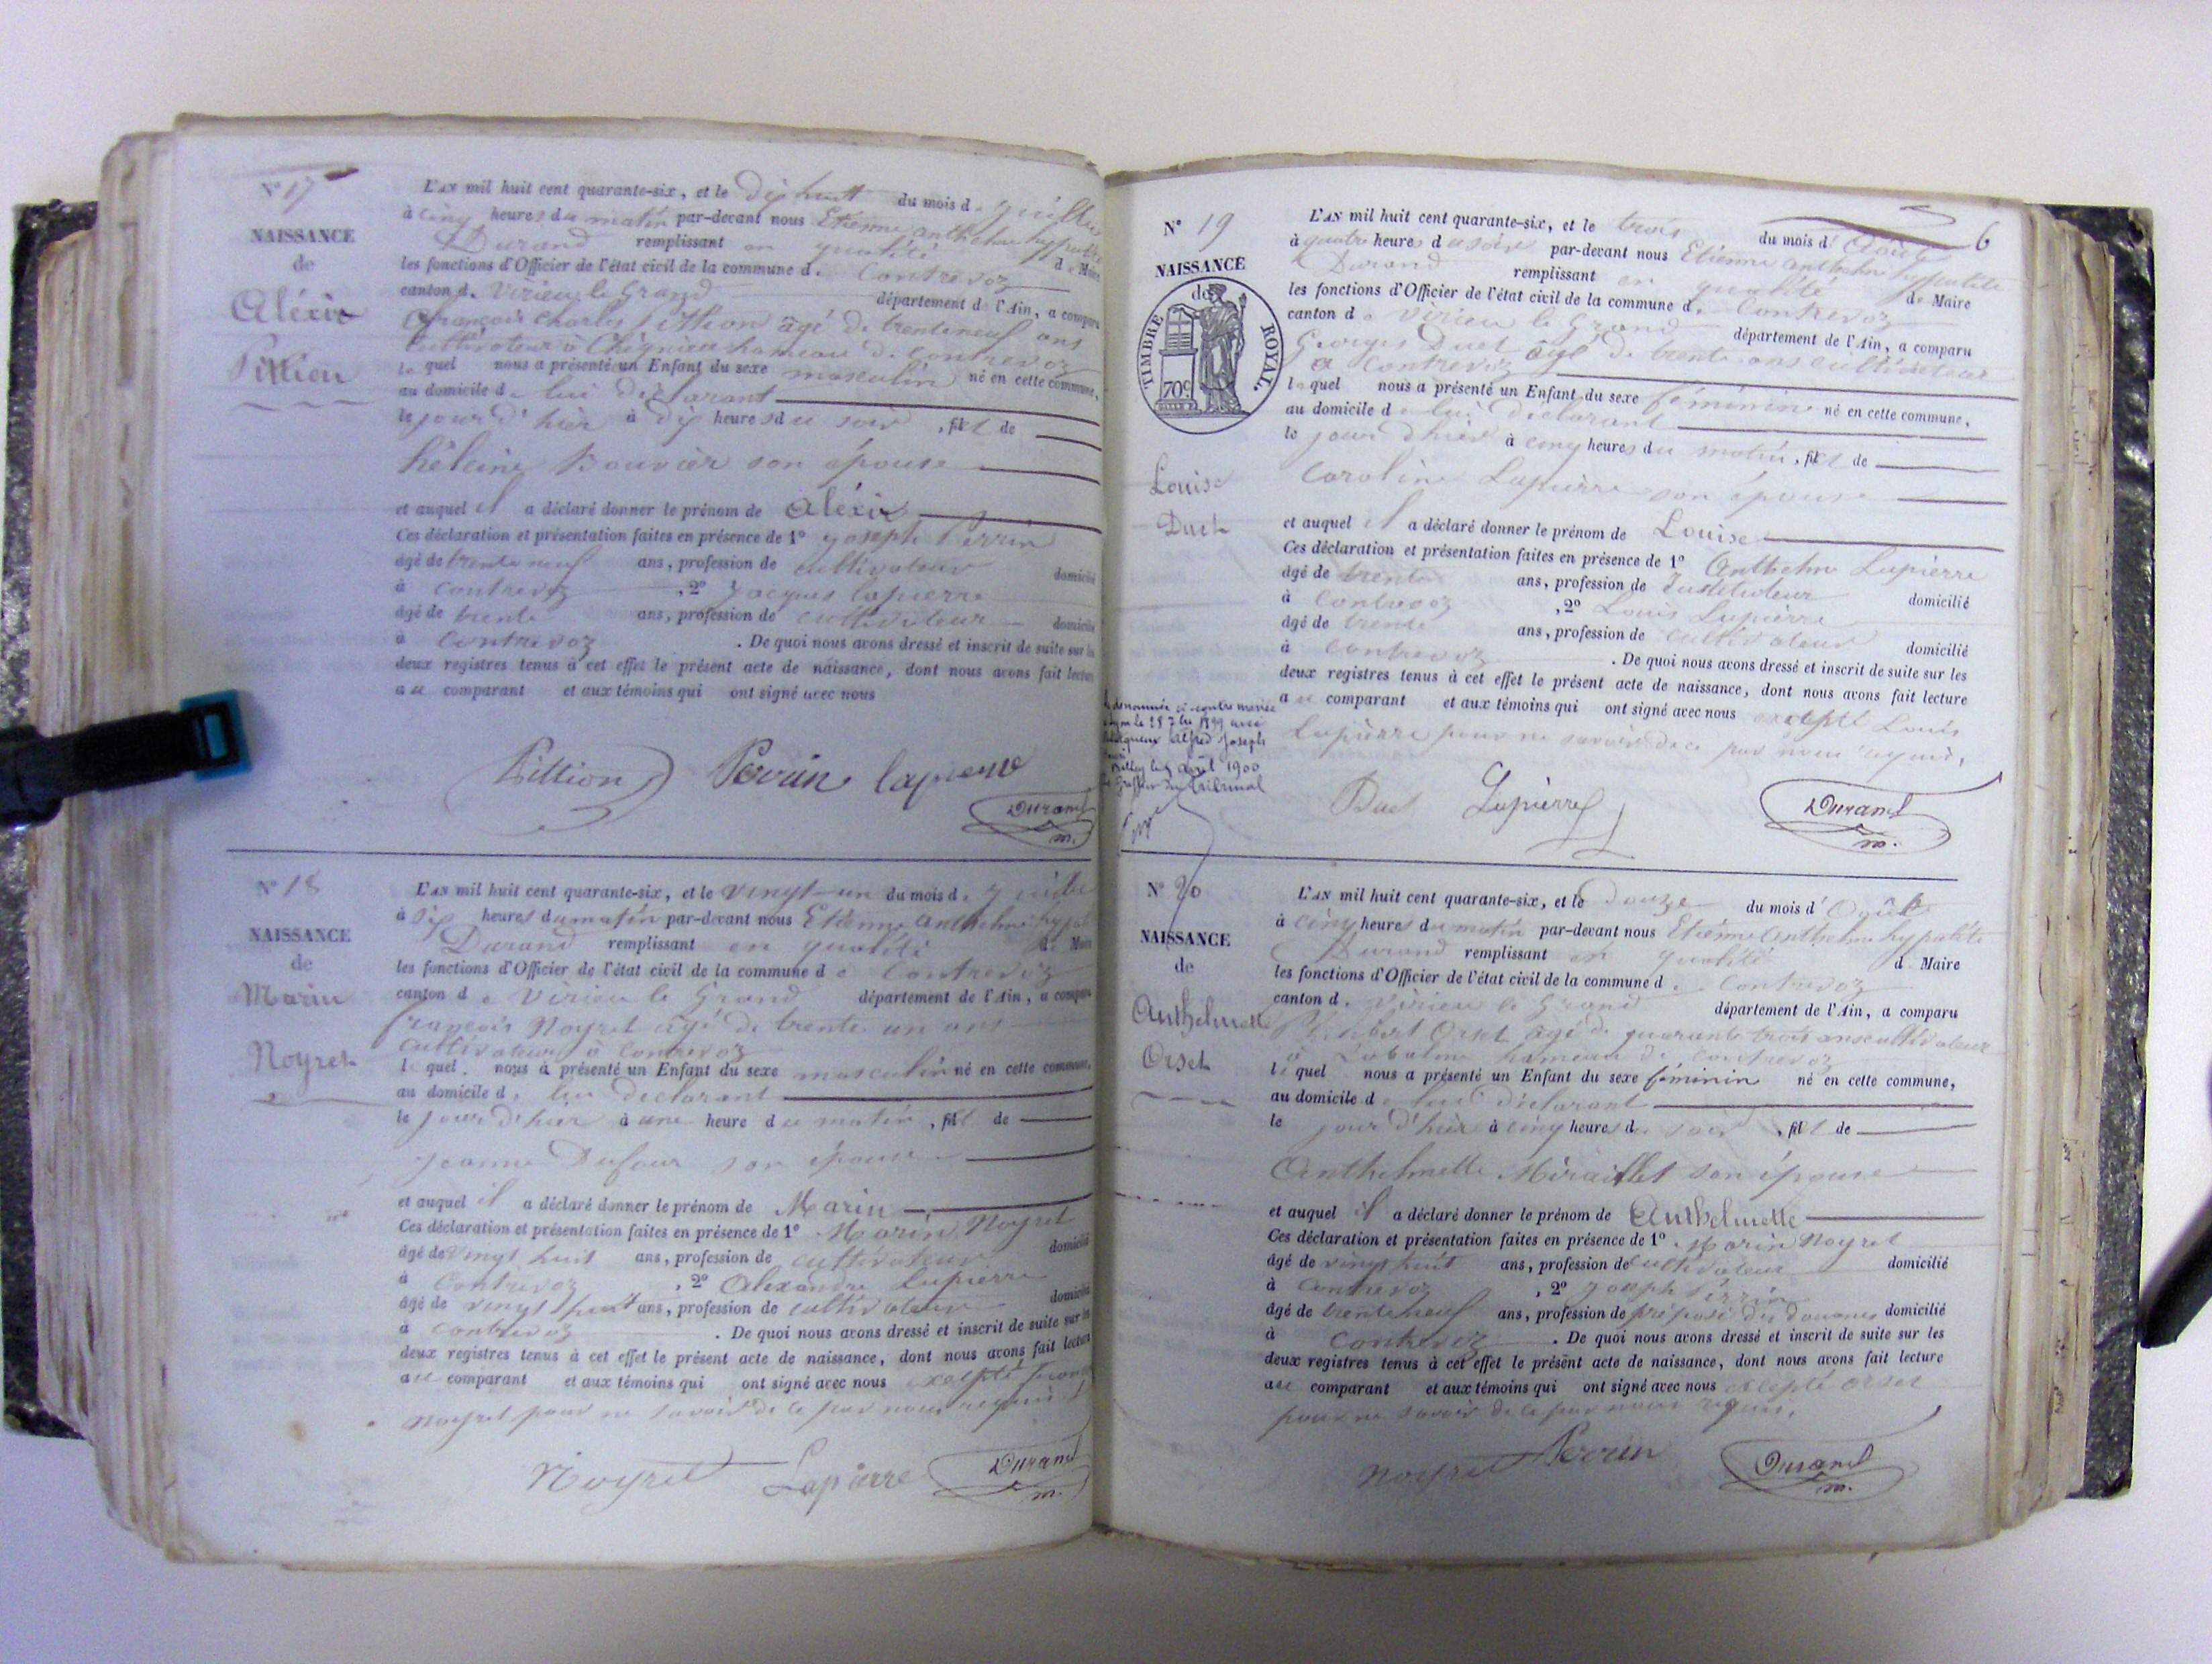 N° 17
NAISSANCE
de
Aléxis
Pittion
L'AN mil huit cent quarante-six, et le dix huit du mois de juillet
à cinq heures du matin par-devant nous Etienne anthelme hypolite
Durand remplissant en qualité de Maire
les fonctions d'Officier de l'état civil de la commune de Contrevoz
canton de Virieu le Grand département de l'Ain, a comparu
françois Charles Pittion âgé de trente neuf ans
Cultivateur à hameau de Contrevoz
lequel nous a présenté un Enfant du sexe masculin né en cette commune,
au domicile de lui déclarant
le jour d'hier à dix heures du soir, fils de
héleine Bouvier son épouse
et auquel il a déclaré donner le prénom de Aléxis
Ces déclaration et présentation faites en présence de 1° joseph Perrin
âgé de trente neuf ans, profession de cultivateur domicilié
à Contrevoz, 2° Jacques Lapierre
âgé de trente ans, profession de cultivateur domicilié
à Contrevoz. De quoi nous avons dressé et inscrit de suite sur les
deux registres tenus à cet effet le présent acte de naissance, dont nous avons fait lecture
au comparant et aux témoins qui ont signé avec nous
Pittion Perrin lapierre
Durand
m.
N° 18
NAISSANCE
de
Marin
Noyret
L'AN mil huit cent quarante-six, et le vingt-un du mois de juillet
à six heures du matin par-devant nous Etienne anthelme hypolite
Durand remplissant en qualité de Maire
les fonctions d'Officier de l'état civil de la commune de Contrevoz
canton de Virieu le Grand département de l'Ain, a comparu
françois Noyret âgé de trente un ans
Cultivateur à Contrevoz
lequel nous a présenté un Enfant du sexe masculin né en cette commune,
au domicile de lui déclarant
le jour d'hier à une heure du matin, fils de
jeanne Dufour son épouse
et auquel il a déclaré donner le prénom de Marin
Ces déclaration et présentation faites en présence de 1° Marin Noyret
âgé de vingt huit ans, profession de cultivateur domicilié
à Contrevoz, 2° Alexandre Lapierre
âgé de vingt huit ans, profession de cultivateur domicilié
à Contrevoz. De quoi nous avons dressé et inscrit de suite sur les
deux registres tenus à cet effet le présent acte de naissance, dont nous avons fait lecture
au comparant et aux témoins qui ont signé avec nous excepté françois
Noyret pour ne savoir de ce par nous requis
Noyret Lapierre Durand
m.
6
N° 19
NAISSANCE
de
TIMBRE ROYAL.
70c
Louise
Duet
L'AN mil huit cent quarante-six, et le trois du mois d'Août
à quatre heures du soir par-devant nous Etienne anthelme hypolite
Durand remplissant en qualité de Maire
les fonctions d'Officier de l'état civil de la commune de Contrevoz
canton de Virieu le Grand département de l'Ain, a comparu
Georges Duet âgé de trente ans cultivateur
à Contrevoz
lequel nous a présenté un Enfant du sexe féminin né en cette commune,
au domicile de lui déclarant
le jour d'hier à cinq heures du matin, fille de
Caroline Lapierre son épouse
et auquel il a déclaré donner le prénom de Louise
Ces déclaration et présentation faites en présence de 1° Anthelme Lapierre
âgé de trente ans, profession de Instituteur domicilié
à Contrevoz, 2° Louis Lapierre
âgé de trente ans, profession de cultivateur domicilié
à Contrevoz. De quoi nous avons dressé et inscrit de suite sur les
deux registres tenus à cet effet le présent acte de naissance, dont nous avons fait lecture
au comparant et aux témoins qui ont signé avec nous excepté Louis
Lapierre pour ne savoir de ce par nous requis.
Duet Lapierre Durand
m.
dénommée ci-contre mariée
le 28 7bre 1899 avec
Alfred Joseph
Belley le avril 1900
Le Greffier du tribunal
N° 20
NAISSANCE
de
Anthelmette
Orset
L'AN mil huit cent quarante-six, et le douze du mois d'Août
à cinq heures du matin par-devant nous Etienne anthelme hypolite
Durand remplissant en qualité de Maire
les fonctions d'Officier de l'état civil de la commune de Contrevoz
canton de Virieu le Grand département de l'Ain, a comparu
Philibert Orset âgé de quarante trois ans cultivateur
à Labalme hameau de Contrevoz
lequel nous a présenté un Enfant du sexe féminin né en cette commune,
au domicile de lui déclarant
le jour d'hier à cinq heures du soir, fille de
Anthelmette Miraillet son épouse
et auquel il a déclaré donner le prénom de Anthelmette
Ces déclaration et présentation faites en présence de 1° Marin Noyret
âgé de vingt huit ans, profession de cultivateur domicilié
à Contrevoz, 2° joseph Perrin
âgé de trente neuf ans, profession de préposé des douanes domicilié
à Contrevoz. De quoi nous avons dressé et inscrit de suite sur les
deux registres tenus à cet effet le présent acte de naissance, dont nous avons fait lecture
au comparant et aux témoins qui ont signé avec nous excepté Orset
pour ne savoir de ce par nous requis.
Noyret Perrin Durand
m.